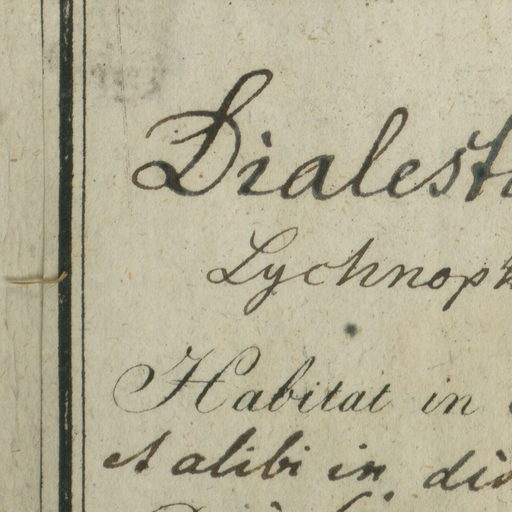 Dialest
Lychnop
Habitat in
et alibi in